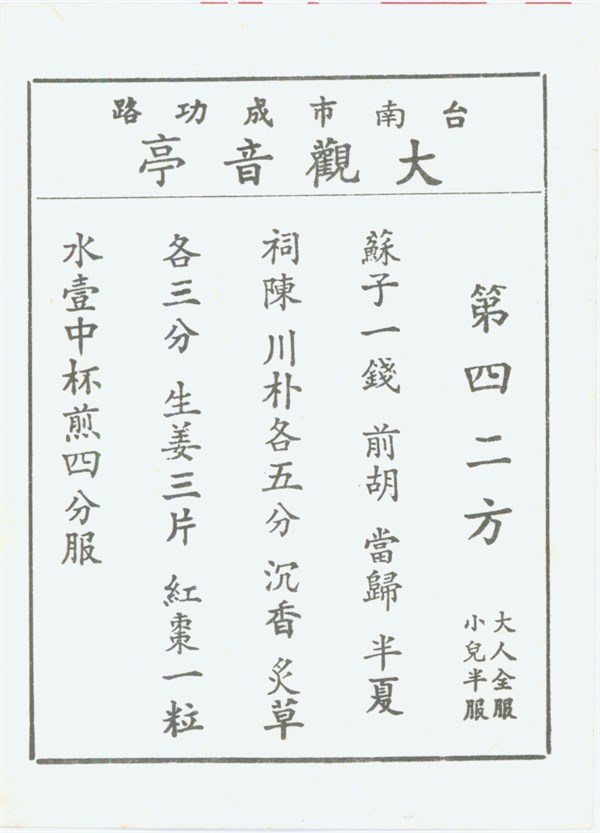 台南市成功路
大觀音亭
第四二方
大人全服
小兒半服
蘇子一錢 前胡 當歸 半夏
祠陳 川朴各五分 沉香 炙草
各三分 生姜三片 紅棗一粒
水壹中杯煎四分服